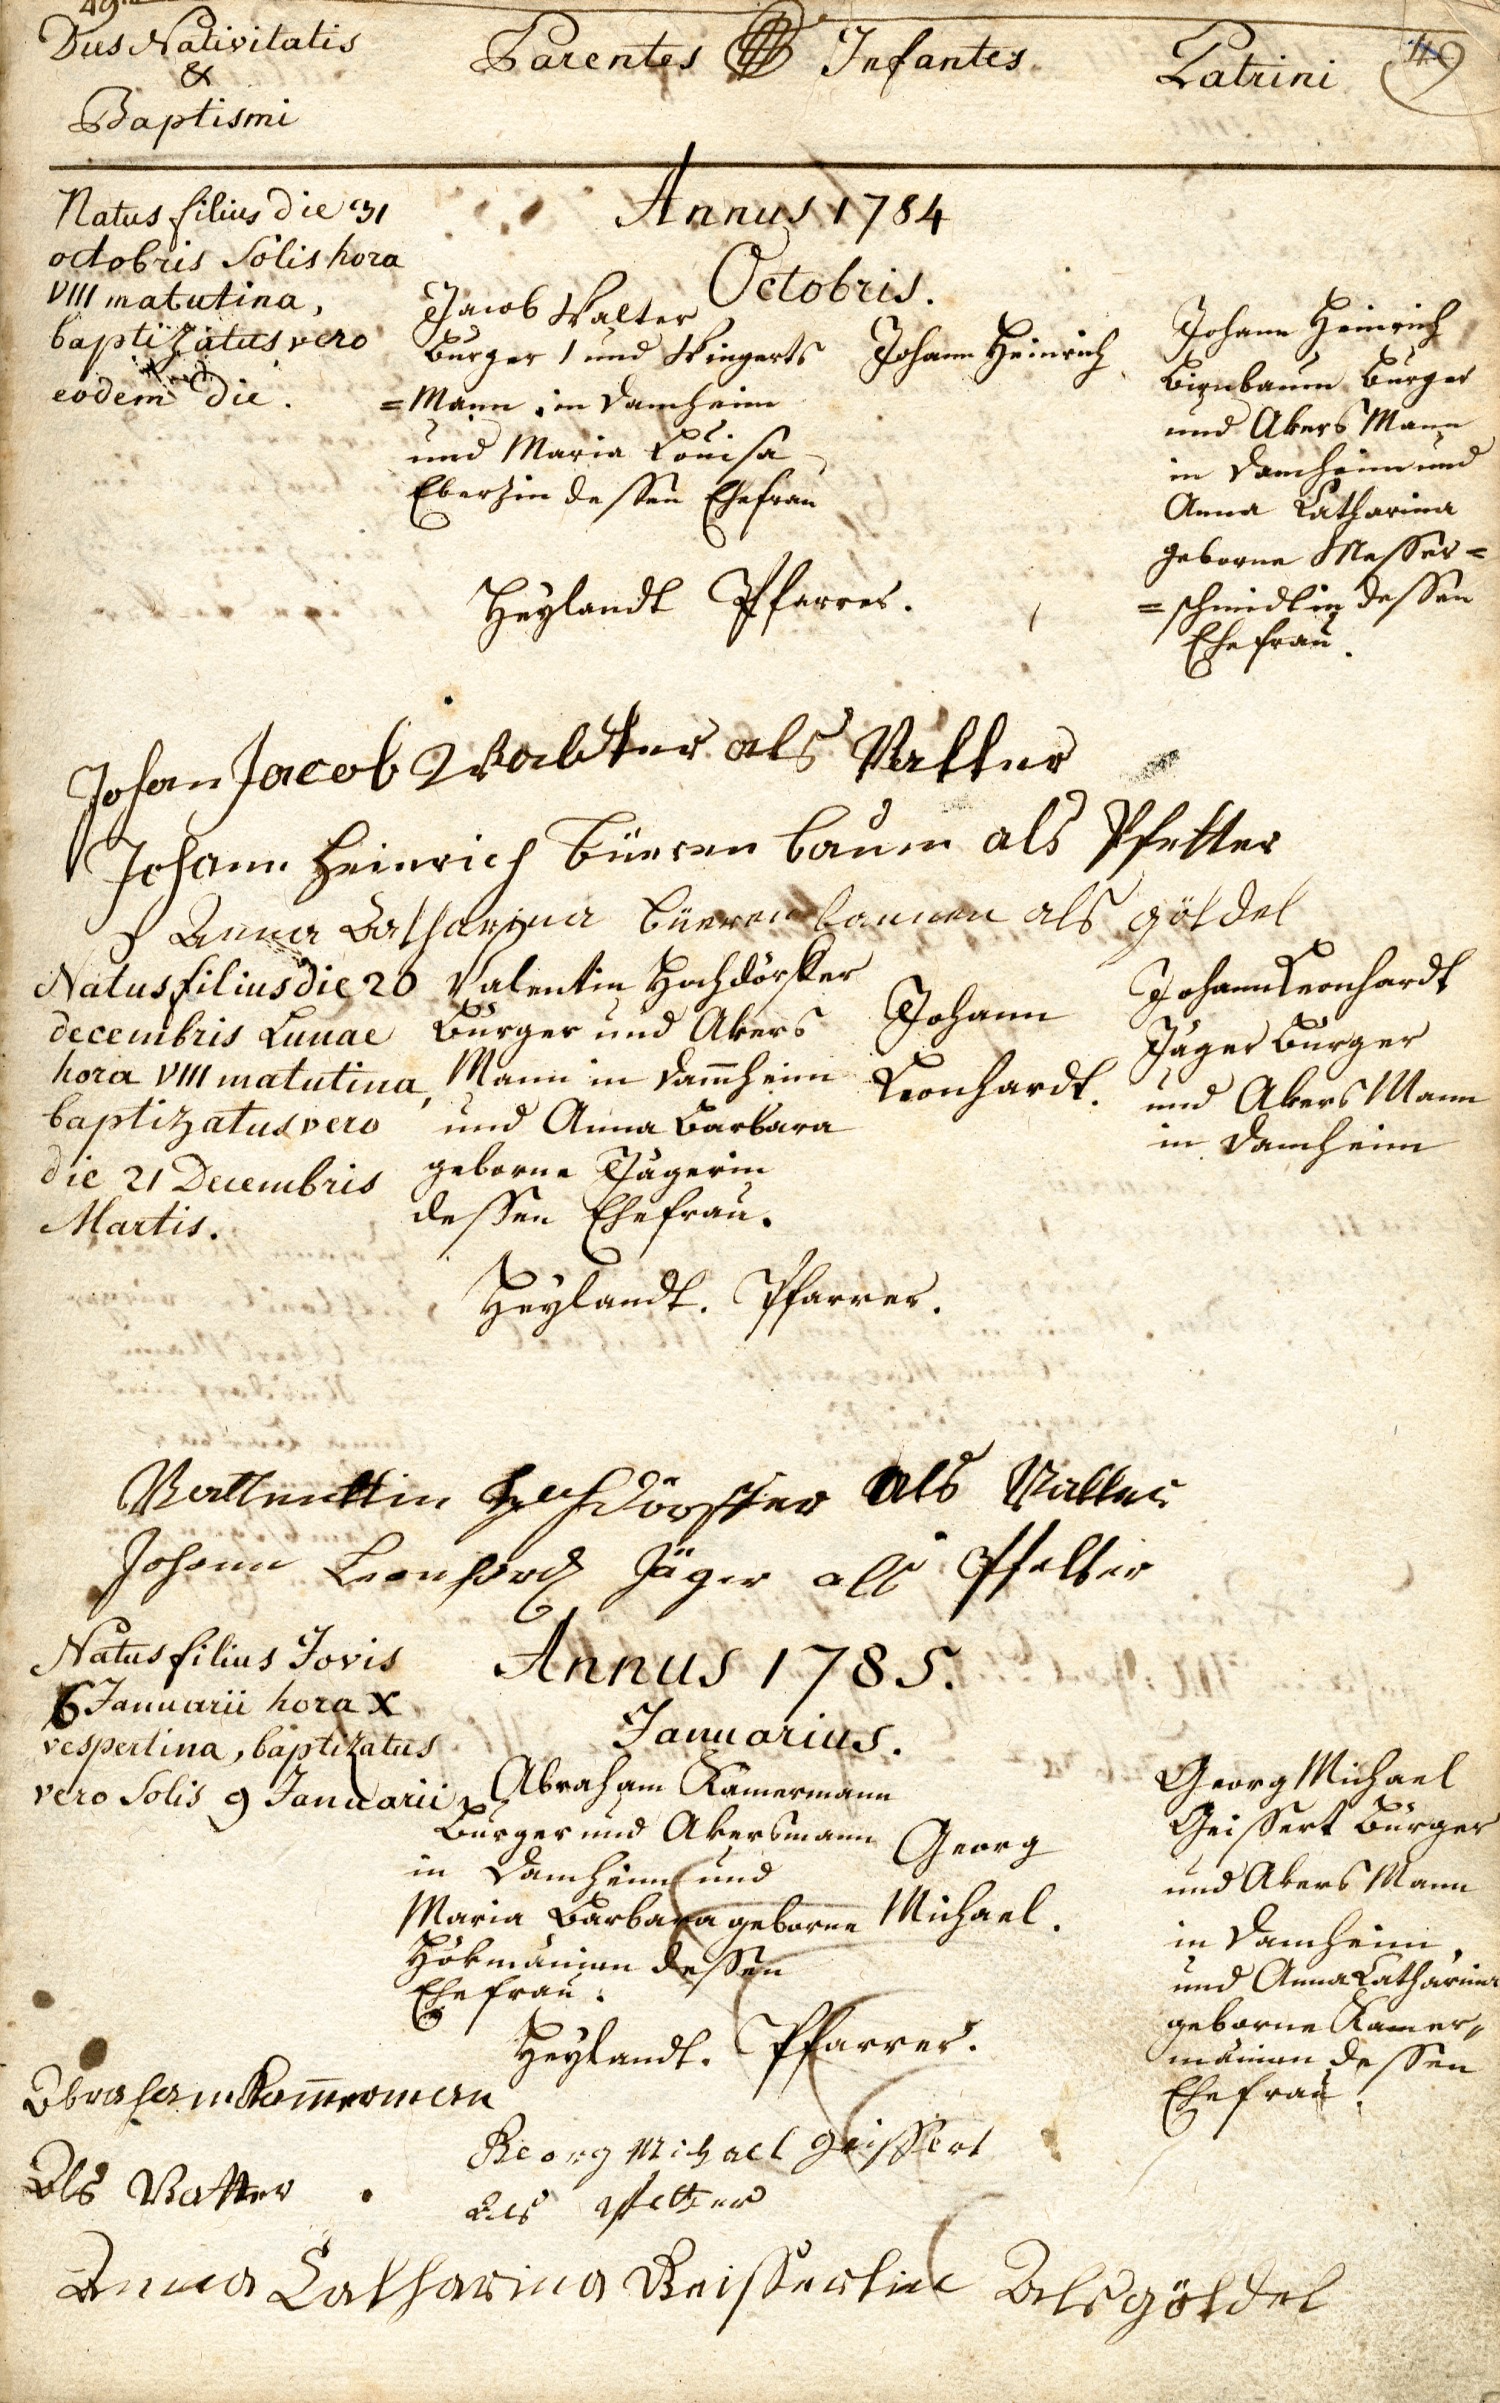 49
Dies Nativitatis
&
Baptismi
Parentes
Infantes
Patrini
49
Annus 1784
Octobris.
Natus filius die 31
octobris Solis hora
VIII matutina,
baptizatus vero
eodem die.
Jacob Walter
Burger und Wingerts
=Mann in Damheim
und Maria Louisa
Eberzin dessen Ehefrau
Johann Heinrich
Johann Heinrich
Birnbaum Burger
und Akers Mann
in Damheim und
Anna Catharina
geborne Messer=
=schmidtin dessen
Ehefrau.
Heylandt Pfarrer.
Johan Jacob Waldter als Vatter
Johann Heinrich büeren baum als Pfetter
Anna Catharina büerenbaumen als götdel
Natus filius die 20
decembris Lunae
hora VIII matutina,
baptizatus vero
die 21 Decembris
Martis.
Valentin Hochdörffer
Burger und Akers
Mann in Dam̄heim
und Anna Barbara
geborne Jägerin
dessen Ehefrau.
Johann
Leonhardt.
Johann Leonhardt
Jäger Burger
und Akers Mann
in Damheim
Heylandt. Pfarrer.
Vallenttin Hochdörffer als Vatter
Johann Leonhard Jäger als Pfetter
Annus 1785.
Januarius.
Natus filius Jovis
6 Januarii hora X
vespertina, baptizatus
vero Solis 9 Januarii
Abraham Kamermann
Burger und Akersmann
in Damheim und
Maria Barbara geborne
Hökmännin dessen
Ehefrau.
Georg
Michael.
Georg Michael
Geissert Burger
und Akers Mann
in Damheim,
und Anna Catharina
geborne Kamer„
mänin dessen
Ehefrau.
Heylandt. Pfarrer.
Abraham Kam̄erman
Als Vatter
Georg Michael geissert
als Pfetter
Anna Catharina Geissertin Als götdel